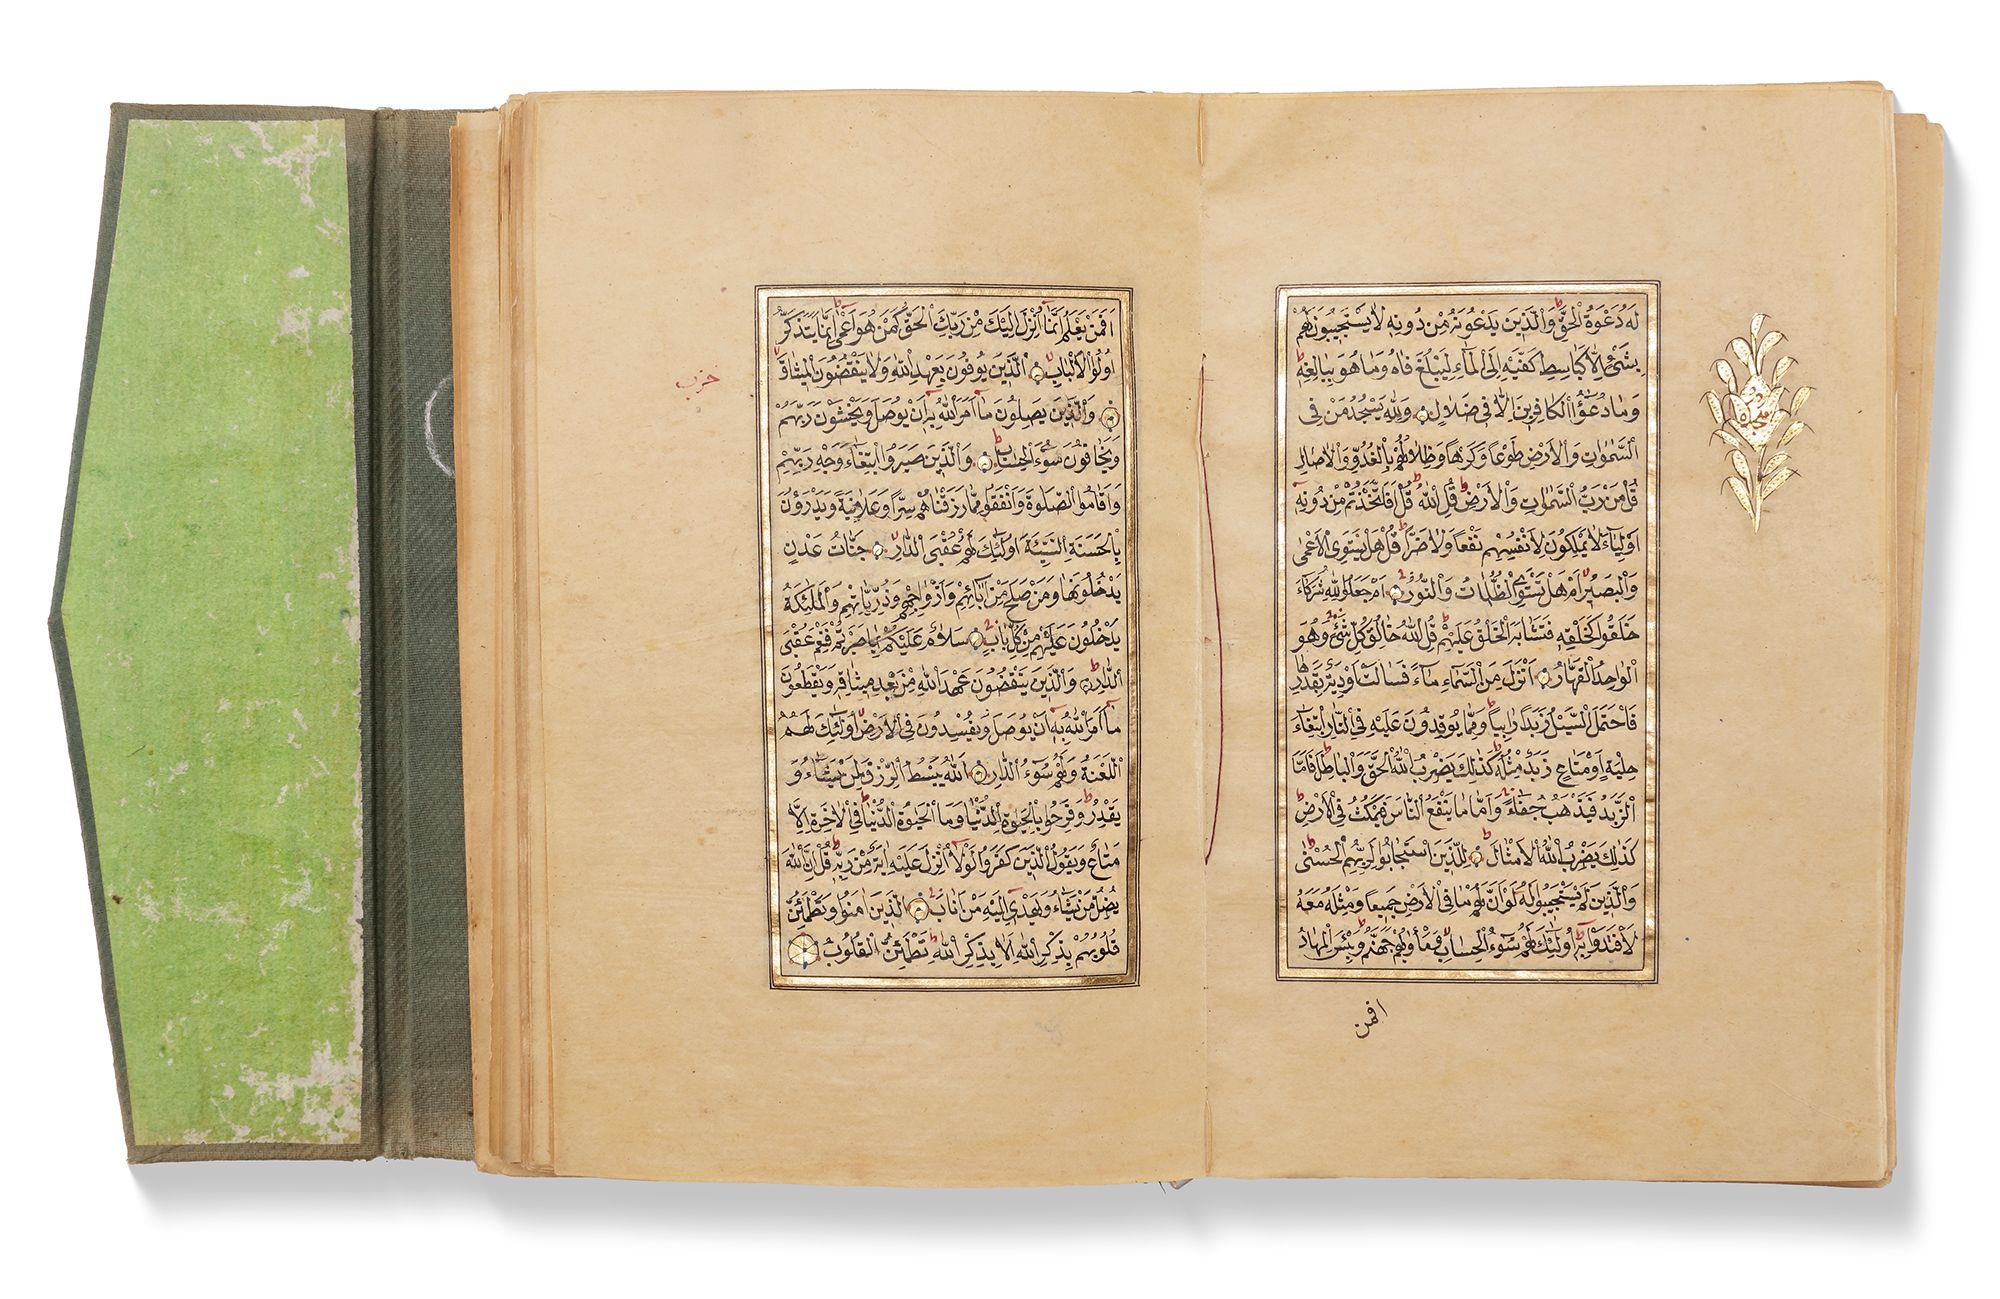 لَهُ دَعْوَةُ الْحَقِّ وَالَّذِينَ يَدْعُونَ مِنْ دُونِهِ لَا يَسْتَجِيبُونَ لَهُمْ
بِشَيْءٍ إِلَّا كَبَاسِطِ كَفَّيْهِ إِلَى الْمَاءِ لِيَبْلُغَ فَاهُ وَمَا هُوَ بِبَالِغِهِ
وَمَا دُعَٰٓؤُا الْكَافِرِينَ إِلَّا فِي ضَلَالٍ وَلِلَّهِ يَسْجُدُ مَنْ فِي
السَّمٰوَاتِ وَالْأَرْضِ طَوْعًا وَكَرْهًا وَظِلَالُهُمْ بِالْغُدُوِّ وَالْآصَالِ
قُلْ مَنْ رَبُّ السَّمٰوَاتِ وَالْأَرْضِ قُلِ اللَّهُ قُلْ أَفَاتَّخَذْتُمْ مِنْ دُونِهِ
أَوْلِيَاءَ لَا يَمْلِكُونَ لِأَنْفُسِهِمْ نَفْعًا وَلَا ضَرًّا قُلْ هَلْ يَسْتَوِي الْأَعْمَى
وَالْبَصِيرُ أَمْ هَلْ تَسْتَوِي الظُّلُمَاتُ وَالنُّورُ أَمْ جَعَلُوا لِلَّهِ شُرَكَاءَ
خَلَقُوا كَخَلْقِهِ فَتَشَابَهَ الْخَلْقُ عَلَيْهِمْ قُلِ اللَّهُ خَالِقُ كُلِّ شَيْءٍ وَهُوَ
الْوَاحِدُ الْقَهَّارُ أَنْزَلَ مِنَ السَّمَاءِ مَاءً فَسَالَتْ أَوْدِيَةٌ بِقَدَرِهَا
فَاحْتَمَلَ السَّيْلُ زَبَدًا رَابِيًا وَمِمَّا يُوقِدُونَ عَلَيْهِ فِي النَّارِ ابْتِغَاءَ
حِلْيَةٍ أَوْ مَتَاعٍ زَبَدٌ مِثْلُهُ كَذَلِكَ يَضْرِبُ اللَّهُ الْحَقَّ وَالْبَاطِلَ فَأَمَّا
الزَّبَدُ فَيَذْهَبُ جُفَاءً وَأَمَّا مَا يَنْفَعُ النَّاسَ فَيَمْكُثُ فِي الْأَرْضِ
كَذَلِكَ يَضْرِبُ اللَّهُ الْأَمْثَالَ لِلَّذِينَ اسْتَجَابُوا لِرَبِّهِمُ الْحُسْنَى
وَالَّذِينَ لَمْ يَسْتَجِيبُوا لَهُ لَوْ أَنَّ لَهُمْ مَا فِي الْأَرْضِ جَمِيعًا وَمِثْلَهُ مَعَهُ
لَافْتَدَوْا بِهِ أُولَئِكَ لَهُمْ سُوءُ الْحِسَابِ وَمَأْوٰيهُمْ جَهَنَّمُ وَبِئْسَ الْمِهَادُ
افمن
أَفَمَنْ يَعْلَمُ أَنَّمَا أُنْزِلَ إِلَيْكَ مِنْ رَبِّكَ الْحَقُّ كَمَنْ هُوَ أَعْمَى إِنَّمَا يَتَذَكَّرُ
أُولُوا الْأَلْبَابِ الَّذِينَ يُوفُونَ بِعَهْدِ اللَّهِ وَلَا يَنْقُضُونَ الْمِيثَاقَ
وَالَّذِينَ يَصِلُونَ مَا أَمَرَ اللَّهُ بِهِ أَنْ يُوصَلَ وَيَخْشَوْنَ رَبَّهُمْ
وَيَخَافُونَ سُوءَ الْحِسَابِ وَالَّذِينَ صَبَرُوا ابْتِغَاءَ وَجْهِ رَبِّهِمْ
وَأَقَامُوا الصَّلٰوةَ وَأَنْفَقُوا مِمَّا رَزَقْنَاهُمْ سِرًّا وَعَلَانِيَةً وَيَدْرَؤُنَ
بِالْحَسَنَةِ السَّيِّئَةَ أُولَئِكَ لَهُمْ عُقْبَى الدَّارِ جَنَّاتُ عَدْنٍ
يَدْخُلُونَهَا وَمَنْ صَلَحَ مِنْ آبَائِهِمْ وَأَزْوَاجِهِمْ وَذُرِّيَّاتِهِمْ وَالْمَلٰئِكَةُ
يَدْخُلُونَ عَلَيْهِمْ مِنْ كُلِّ بَابٍ سَلَامٌ عَلَيْكُمْ بِمَا صَبَرْتُمْ فَنِعْمَ عُقْبَى
الدَّارِ وَالَّذِينَ يَنْقُضُونَ عَهْدَ اللَّهِ مِنْ بَعْدِ مِيثَاقِهِ وَيَقْطَعُونَ
مَا أَمَرَ اللَّهُ بِهِ أَنْ يُوصَلَ وَيُفْسِدُونَ فِي الْأَرْضِ أُولَئِكَ لَهُمُ
اللَّعْنَةُ وَلَهُمْ سُوءُ الدَّارِ اللَّهُ يَبْسُطُ الرِّزْقَ لِمَنْ يَشَاءُ وَ
يَقْدِرُ وَفَرِحُوا بِالْحَيٰوةِ الدُّنْيَا وَمَا الْحَيٰوةُ الدُّنْيَا فِي الْآخِرَةِ إِلَّا
مَتَاعٌ وَيَقُولُ الَّذِينَ كَفَرُوا لَوْلَا أُنْزِلَ عَلَيْهِ آيَةٌ مِنْ رَبِّهِ قُلْ إِنَّ اللَّهَ
يُضِلُّ مَنْ يَشَاءُ وَيَهْدِي إِلَيْهِ مَنْ أَنَابَ الَّذِينَ آمَنُوا وَتَطْمَئِنُّ
قُلُوبُهُمْ بِذِكْرِ اللَّهِ أَلَا بِذِكْرِ اللَّهِ تَطْمَئِنُّ الْقُلُوبُ
حزب